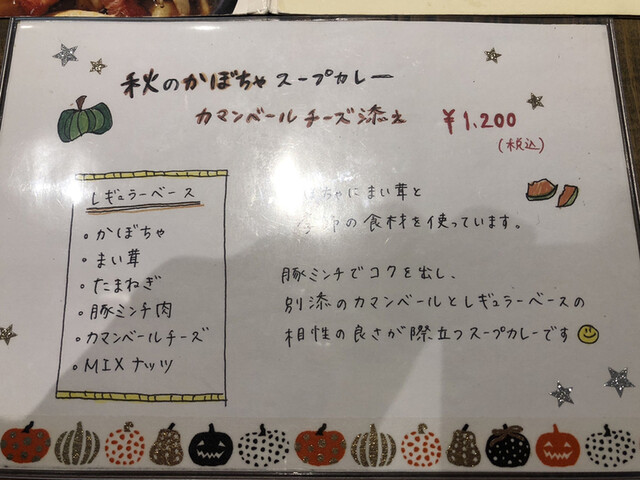 秋のかぼちゃスープカレー
カマンベールチーズ添え
¥1,200
(税込)
レギュラーベース
・かぼちゃ
・まい茸
・たまねぎ
・豚ミンチ肉
・カマンベールチーズ
・MIXナッツ
ぼちゃにまい茸と
の食材を使っています。
豚ミンチでコクを出し、
別添のカマンベールとレギュラーベースの
相性の良さが際立つスープカレーです